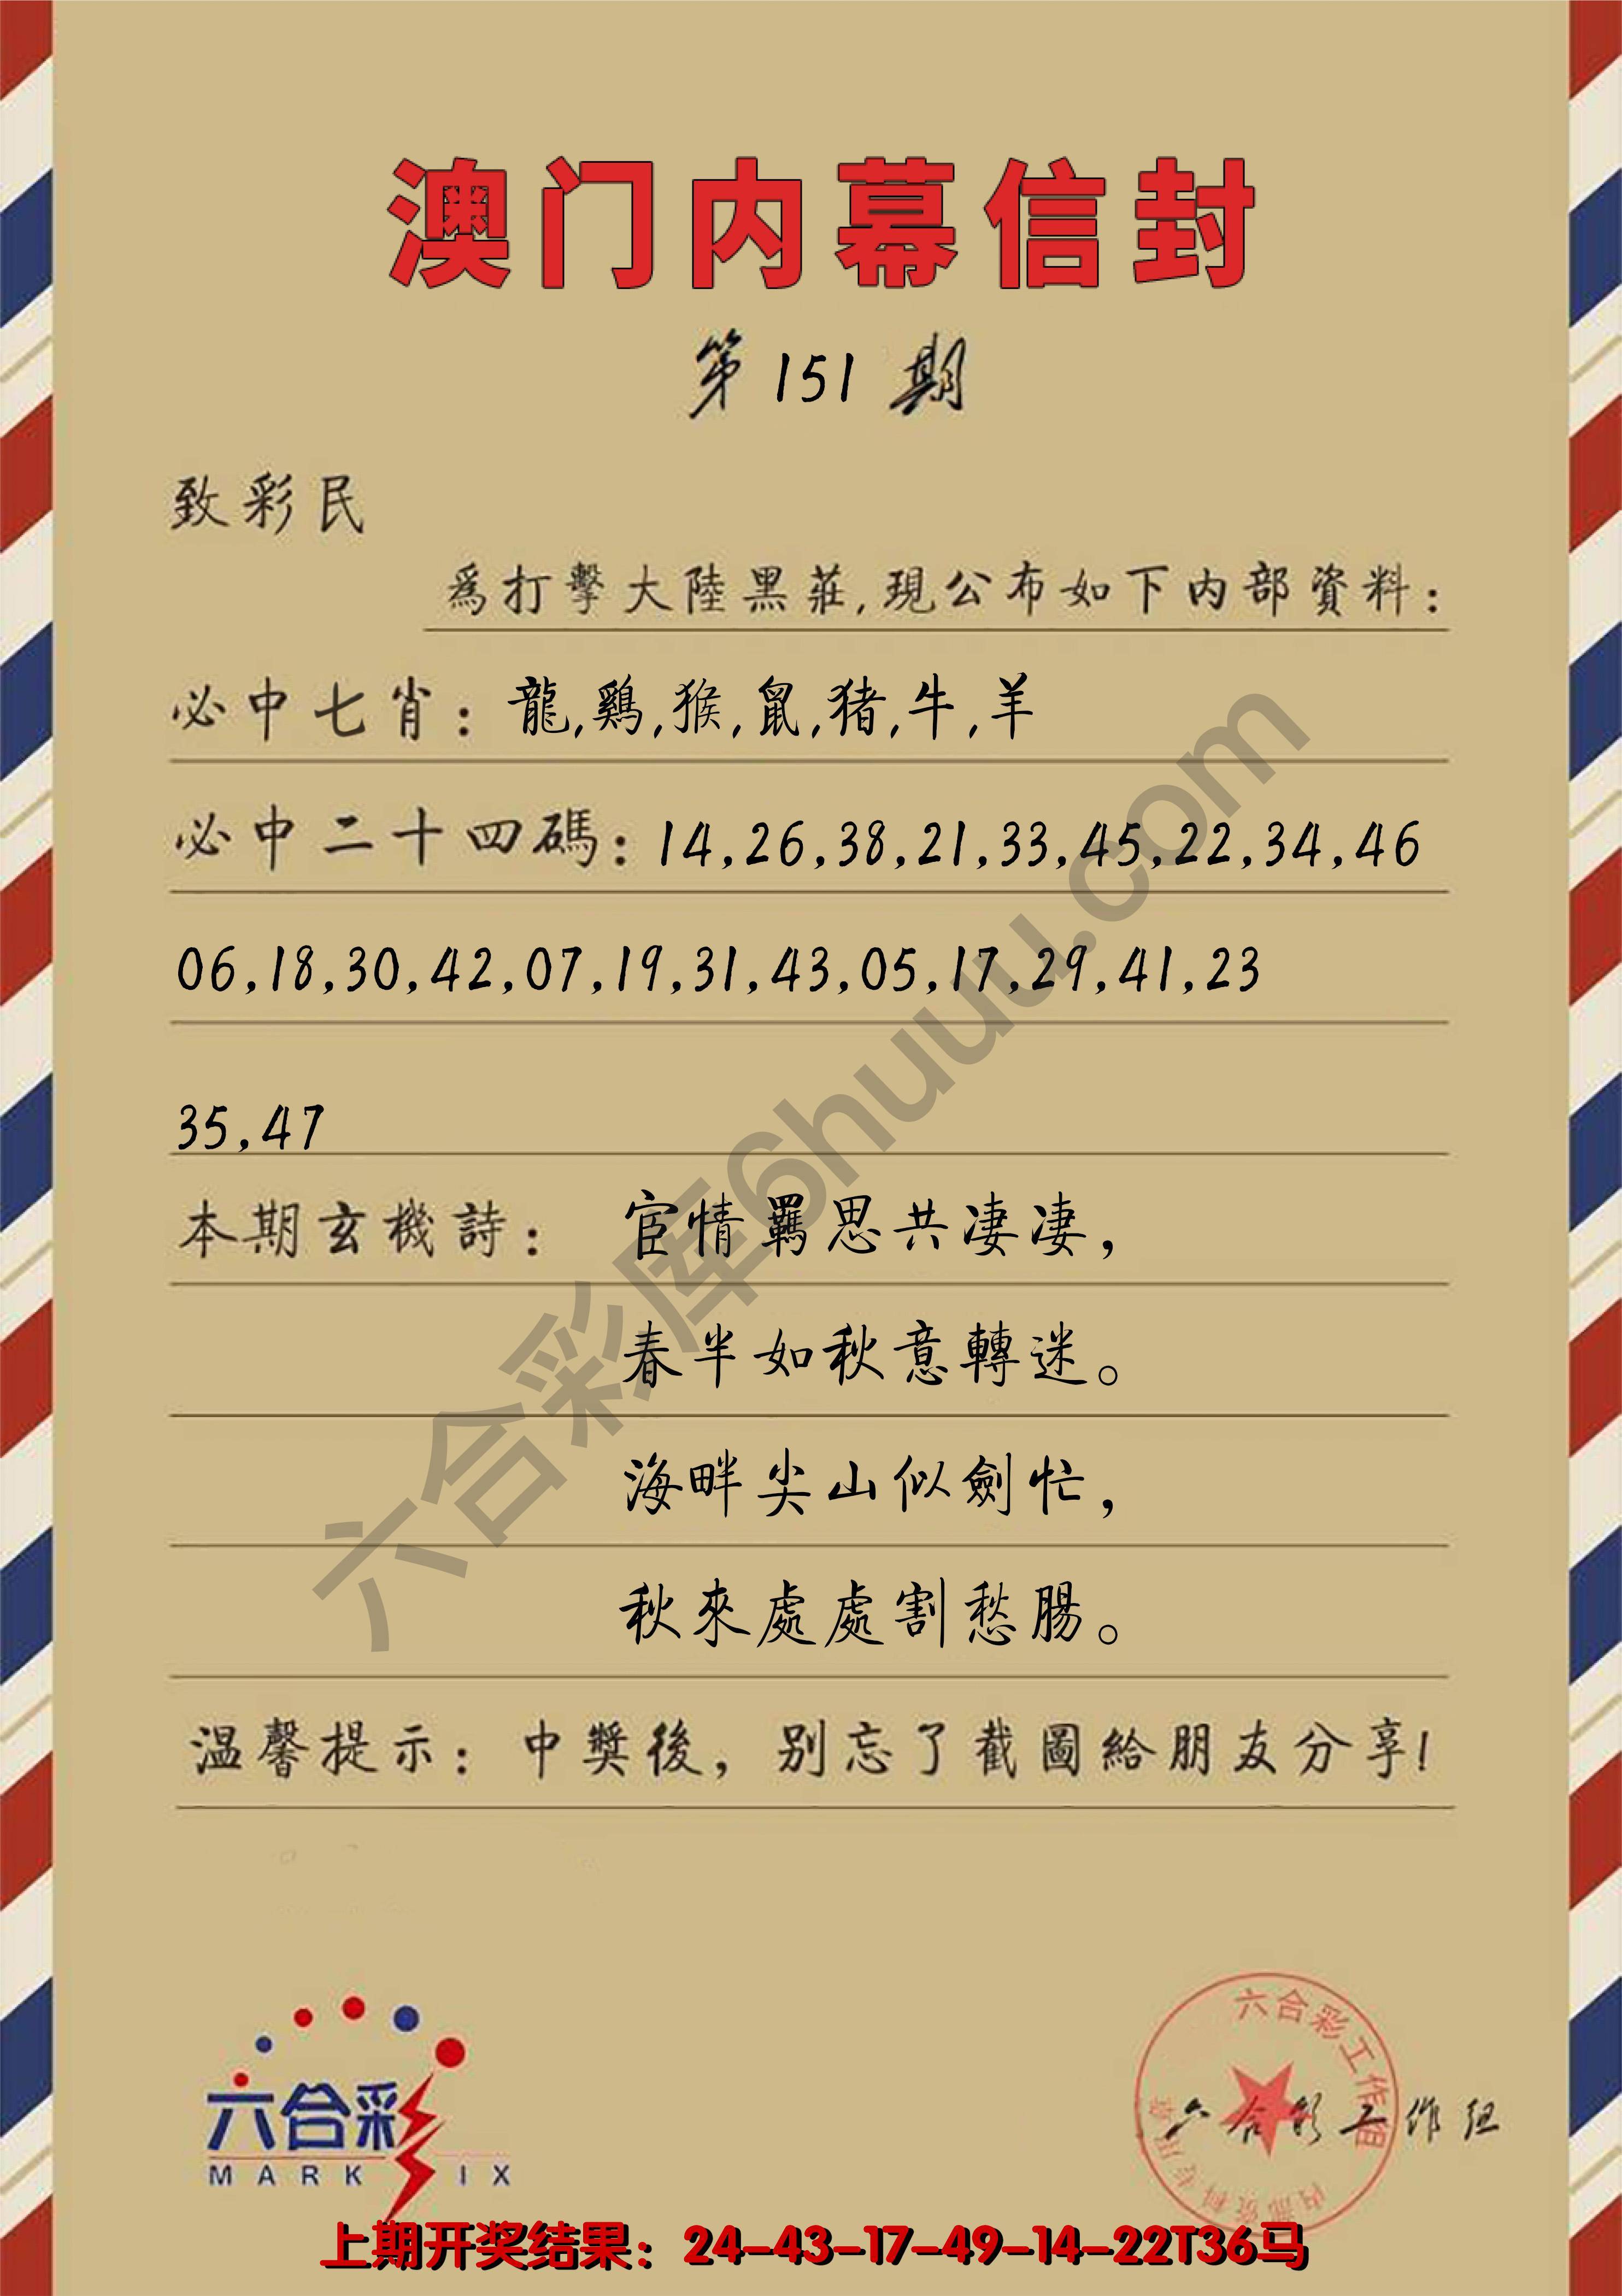 澳门内幕信封
第 151 期
致彩民
爲打擊大陸黑莊,現公布如下内部資料:
必中七肖: 龍,鷄,猴,鼠,猪,牛,羊
必中二十四碼: 14,26,38,21,33,45,22,34,46
06,18,30,42,07,19,31,43,05,17,29,41,23
35,47
本期玄機詩: 宦情羈思共凄凄,
春半如秋意轉迷。
海畔尖山似劍忙,
秋來處處割愁腸。
温馨提示: 中獎後, 别忘了截圖給朋友分享!
六合彩库6huuu.com
六合彩
MARK IX
六合彩工作组
六合彩工作组
上期开奖结果: 24-43-17-49-14-22T36马